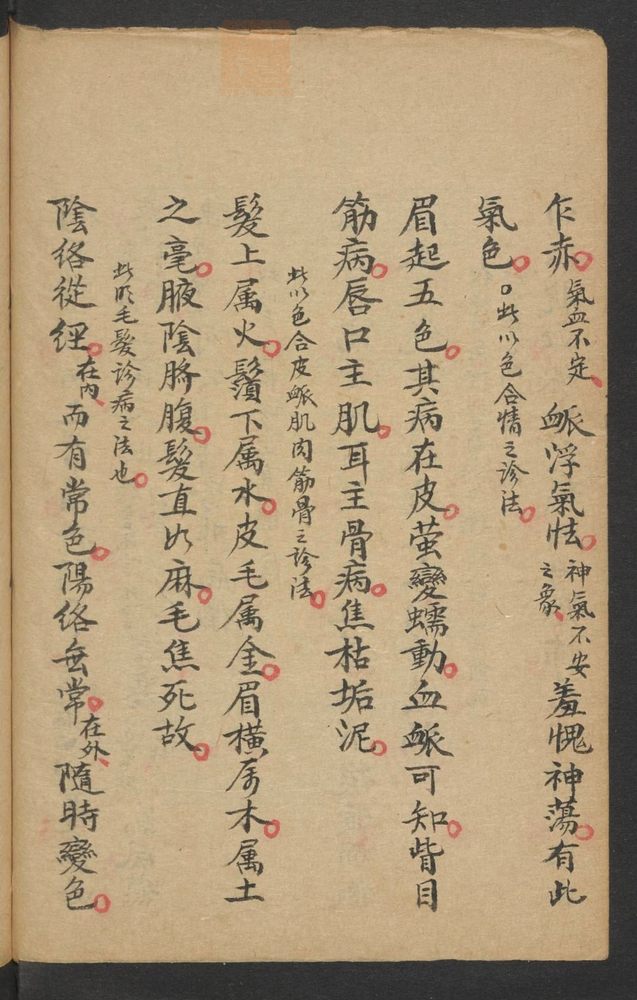 乍赤。氣血不定、衇浮氣怯。神氣不安之象、羞愧神蕩。有此
氣色。○此以色合情之診法。
眉起五色。其病在皮。萤變蠕動。血衇可知。眥目
筋病。唇口主肌。耳主骨病。焦枯垢泥。
此以色合皮衇肌肉筋骨之診法。
髮上属火。鬚下属水。皮毛属金。眉橫属木。属土
之毫。腋陰脐腹。髮直如麻。毛焦死故。
此明毛髮診病之法也。
陰络從經。在内、而有常色。陽络無常。在外、隨時變色。